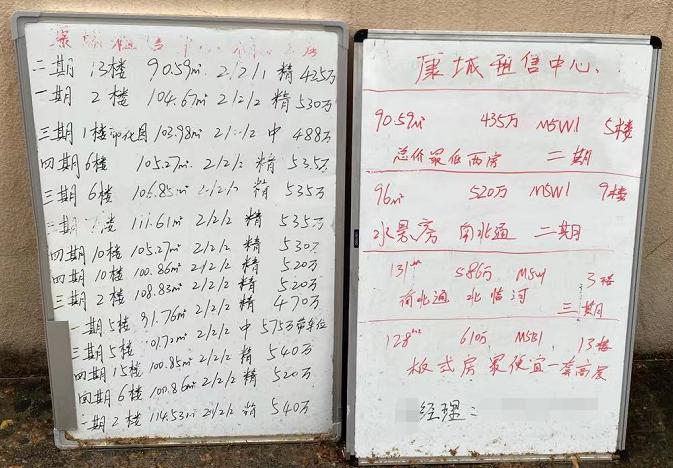 二期 13楼 90.59㎡ 2/2/1 精 435万
一期 2楼 104.67㎡ 2/2/2 精 530万
三期 1楼 花园 103.98㎡ 2/2 中 488万
四期 6楼 105.27㎡ 2/2/2 精 535万
三期 6楼 106.85㎡ 2/2/2 精 535万
三期 楼 111.61㎡ 2/2/2 精 535万
四期 10楼 105.27㎡ 2/2/2 精 530万
四期 10楼 100.86㎡ 2/2/2 精 520万
三期 2楼 108.83㎡ 2/2/2 精 470万
一期 5楼 91.76㎡ 2/2/2 中 575万带车位
三期 5楼 2/2/2 精 540万
四期 15楼 100.85㎡ 2/2/2 精 520万
四期 6楼 100.86㎡ 2/2/2 精 540万
期 2楼 114.53㎡ 2/2/2
康城租售中心
90.59㎡ 435万 5楼
总价最低两房 二期
96㎡ 520万 9楼
水景房 南北通 二期
131㎡ 586万 3楼
南北通 北临河 三期
128㎡ 610万 13楼
板式房 最便宜一套高层
经理：